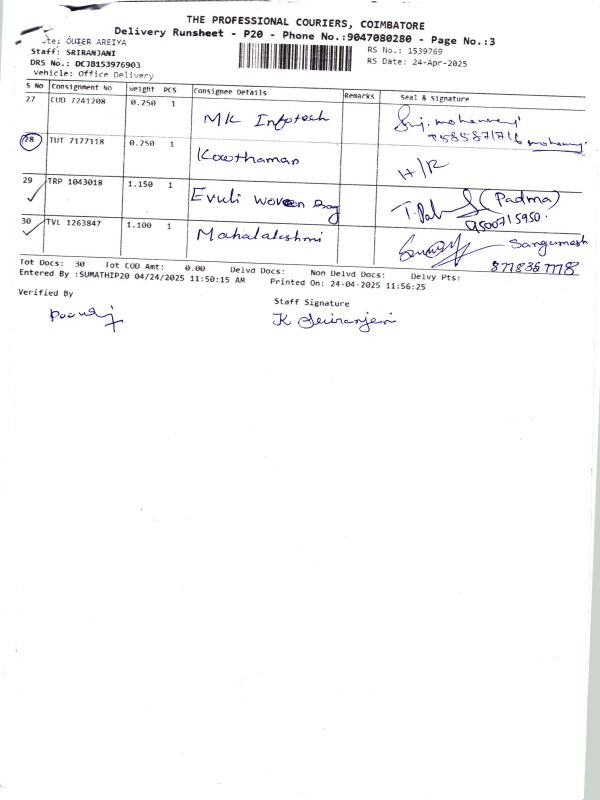 THE PROFESSIONAL COURIERS, COIMBATORE
Delivery Runsheet - P20 - Phone No.:9047080280 - Page No.:3
OUTER AREIYA
Staff: SRIRANJANI
RS No.: 1539769
DRS No.: DCJB153976903
RS Date: 24-Apr-2025
Vehicle: Office Delivery
S No Consignment No Weight PCS Consignee Details Remarks Seal & Signature
27 CUD 7241208 0.250 1 MK Infotech
28 TUT 7177118 0.250 1 Kowthaman H/R
29 TRP 1043018 1.150 1 Evuli woven Bag (Padma)
9500715950.
30 TVL 1263847 1.100 1 Mahalakshmi Sangumesh
Tot Docs: 30 Tot COD Amt: 0.00 Delvd Docs: Non Delvd Docs: Delvy Pts:
Entered By :SUMATHIP20 04/24/2025 11:50:15 AM Printed On: 24-04-2025 11:56:25
Verified By
Staff Signature